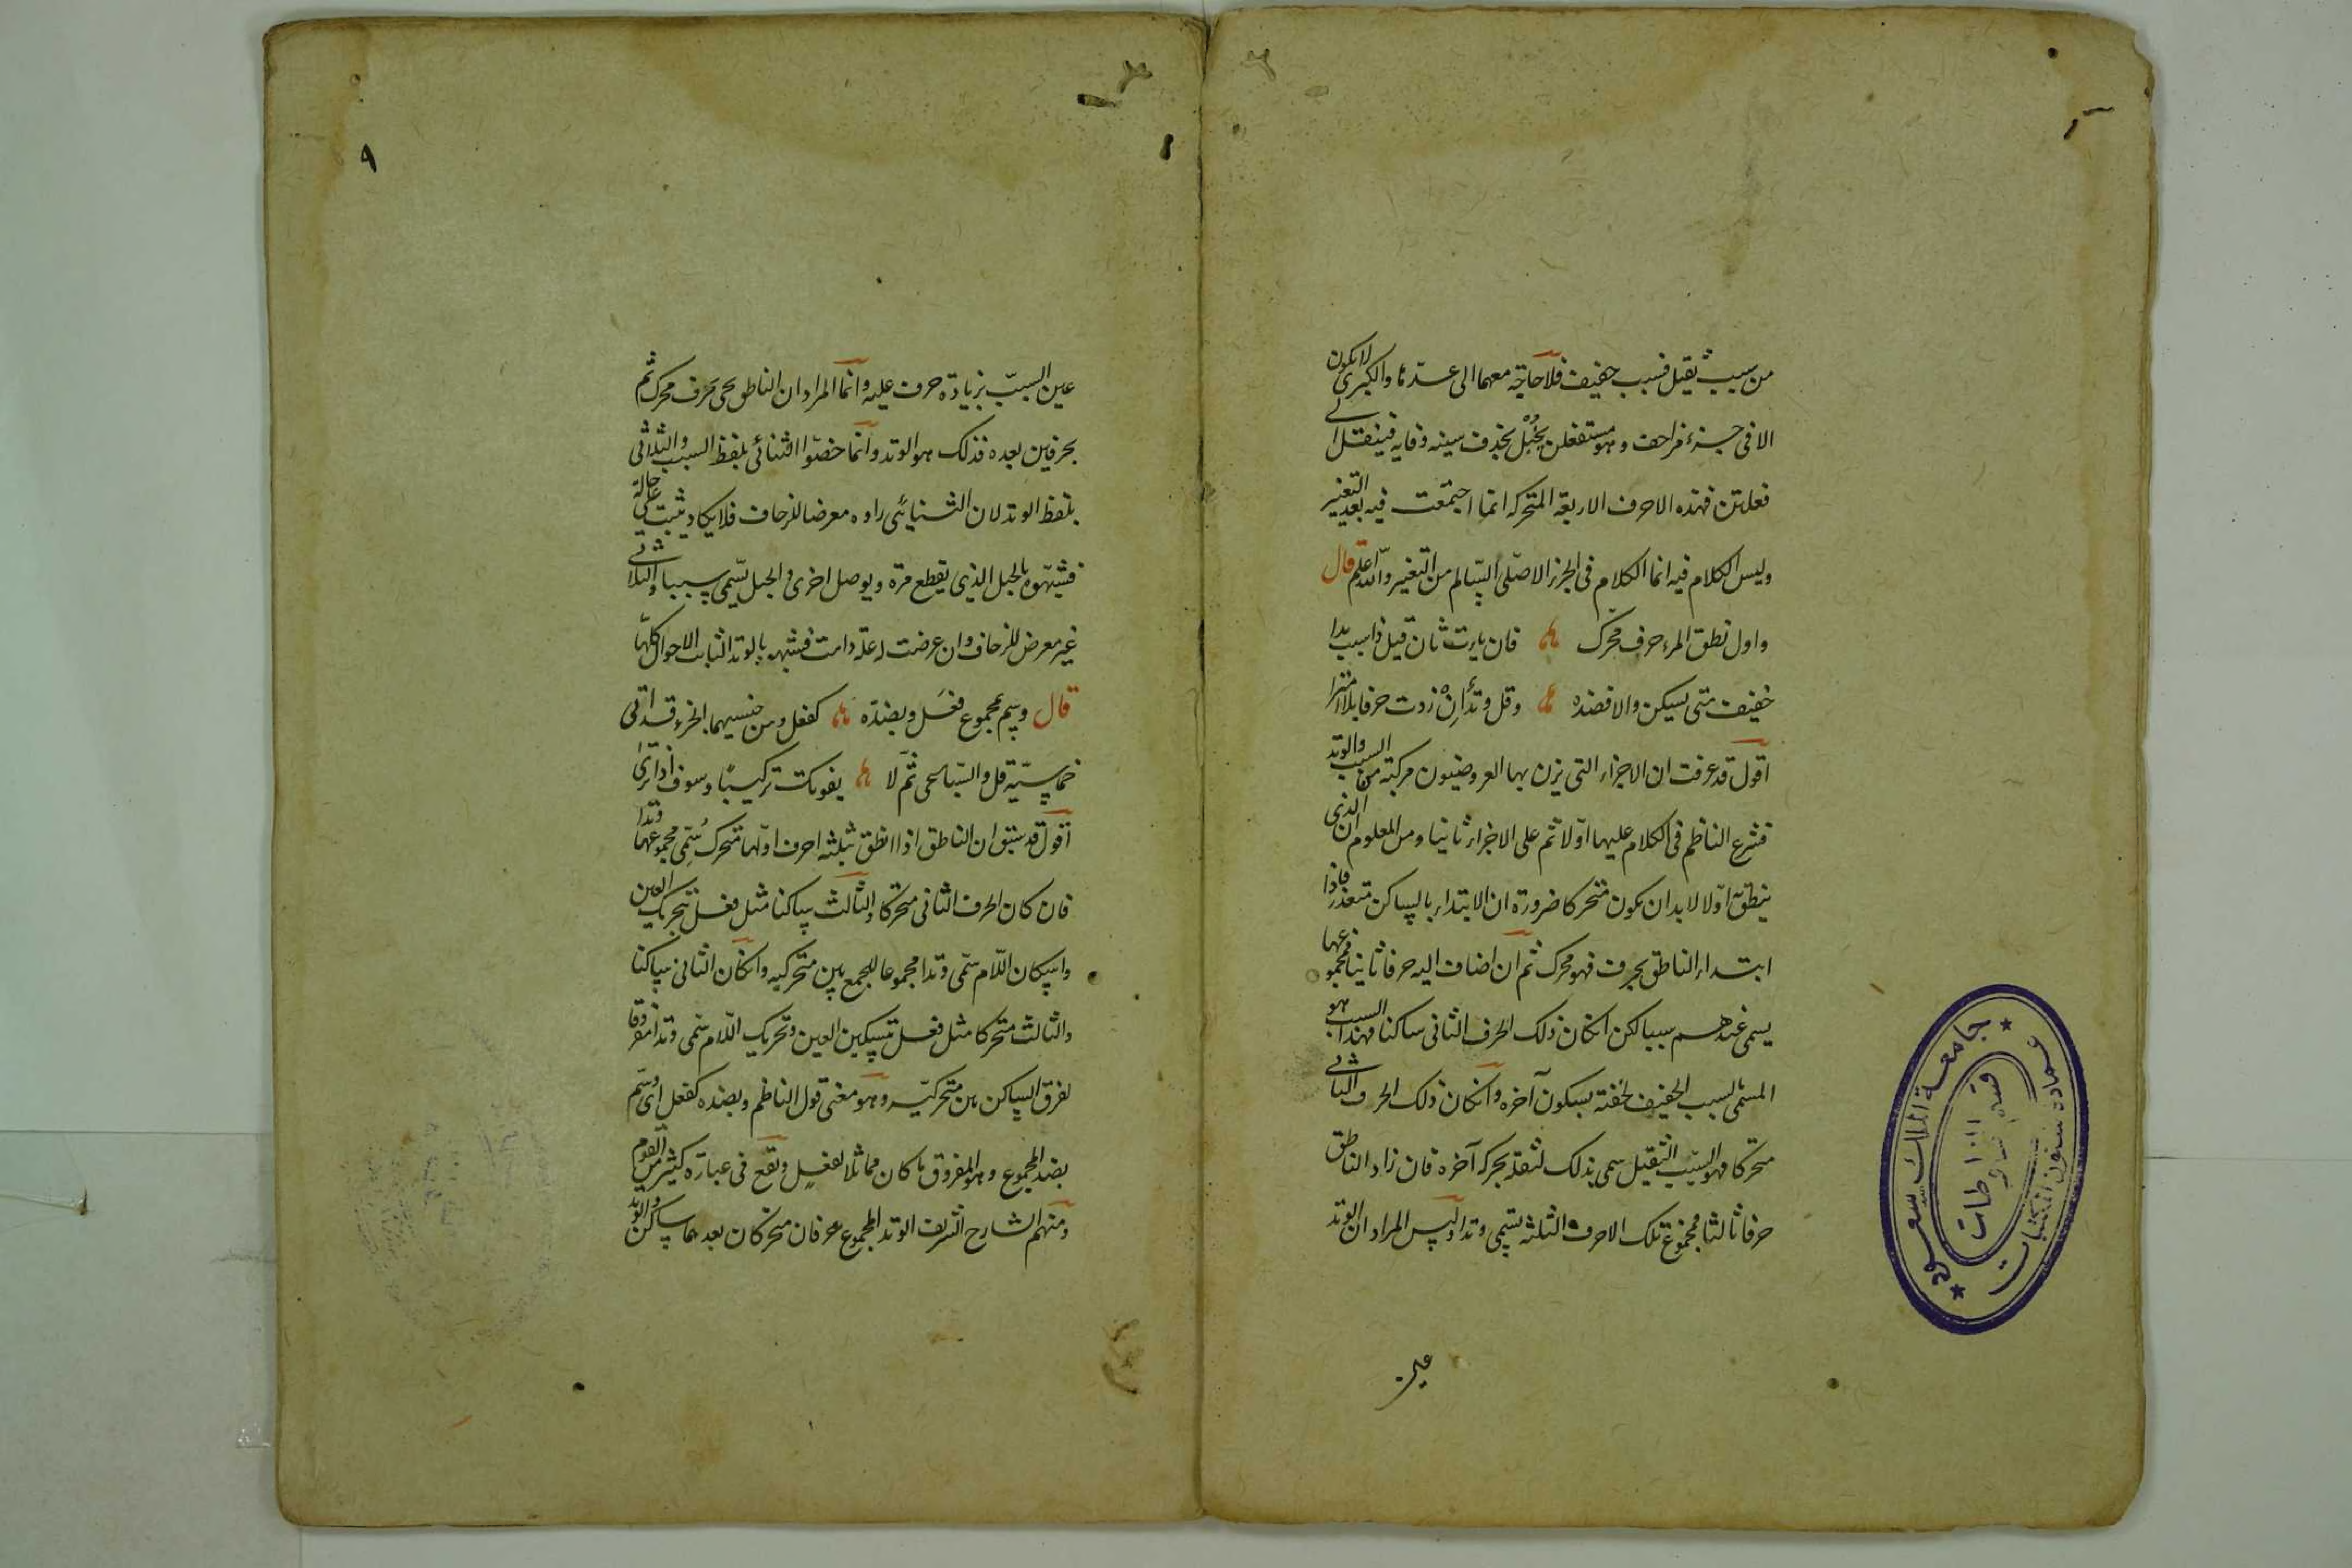 من سبب ثقيل فسبب خفيف فلا حاجة معهما الى عدّها والكبرى لا يكون
الا فى جزء مزاحف وهو مستفعلن بخُبْل بحذف سينه وفايه فينقل الى
فعلتن فهذه الاحرف الاربعة المتحركه انما اجتمعت فيه بعد التغيير
وليس الكلام فيه انما الكلام فى الجزء الاصلى السالم من التغير والله اعلم قال
واول نطق المرء حرف محرك فان يات ثان قيل ذا سبب بدا
خفيف متى يسكن والا فضده وقل وتدًا اِنْ زدت حرفا بلا امترا
اقول قد عرفت ان الاجزاء التى يزن بها العروضيون مركبة من السبب والوتد
فشرع الناظم فى الكلام عليهما اوّلا ثم على الاجزاء ثانيا ومن المعلوم ان الذى
ينطق اوّلا لا بد ان يكون متحركا ضرورة ان الابتداء بالساكن متعذر فاذا
ابتداء الناطق بحرف فهو محرك ثم ان اضاف اليه حرفا ثانيا فمجموعهما
يسمى عندهم سببا لكن انكان ذلك الحرف الثانى ساكنا فهذا السبب هو
المسمى بسبب الخفيف لخفته بسكون آخره وانكان ذلك الحرف الثانى
متحركا فهو السبب الثقيل سمى بذلك لثقله بحركة آخره فان زاد الناطق
حرفا ثالثا فمجموع تلك الاحرف الثلثه يسمى وتدا وليس المراد ان الوتد
عين
٩
عين السبب بزيادة حرف عليه وانما المراد ان الناطق يجى بحرف محرك ثم
بحرفين بعده فذلك هو الوتد وانما خصّوا الثنائى بلفظ السبب والثلاثى
بلفظ الوتد لان الثنائى راوه معرضا للزحاف فلا يكاد يثبت على حالة
فشبهوه بالحبل الذى يقطع مرة ويوصل اخرى والحبل يسمى سببا والثلاثى
غير معرض للزحاف وان عرضت له علة دامت فشبهه بالوتد الثابت الاحوال كلها
قال وسم بمجموع فعل وبضده كفعل ومن جنسيهما الجزء قد اتى
خماسيّه قل والسباعى ثم لا يفوتك تركيبًا وسوف اذا ترى
اقول قد سبق ان الناطق اذا نطق بثلثه احرف اولها متحرك سُمّى مجموعهما وتدا
فان كان الحرف الثانى متحركا والثالث ساكنا مثل فعل بتحريك العين
واسكان اللام سمى وتدا مجموعا للجمع بين متحركيه وانكان الثانى ساكنا
والثالث متحركا مثل فعل بتسكين العين وتحريك اللام سمى وتدا مفروقا
لفرق الساكن بين متحركيه وهو معنى قول الناظم وبضده كفعل اى وسم
بضد المجموع وهو المفروق ما كان مماثلا لفعل وتقع فى عبارة كثير من القوم
ومنهم الشارح الشريف الوتد المجموع حرفان متحركان بعدهما ساكن والوتد
جامعة الملك سعود
عمادة شئون المكتبات
قسم المخطوطات